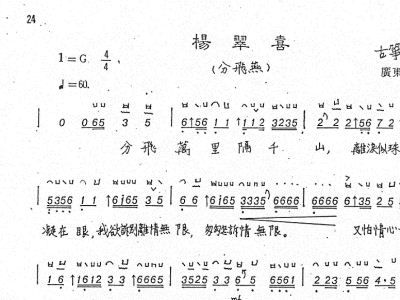 24
楊 翠 喜
(分飛燕)
古箏
廣東
1=G 4/4
♩=60.
0 0 65 3 5 | 6↑56 1 1 ↑1 1 2 3235 | 2 2 2↑56 7 2
分 飛 萬 里 隔 千 山, 離淚似珠
5356 1 1 ↑6165 3 5 | 6 6 ↑6165 3335 6666 | 6666 6↑35 2 5
凝在 眼, 我欲 離情無限, 匆匆 訴情 無限。 又怕情心
1 6 ↑1612 3 3 ↑6665 | 3525 3 3 6 5 6561 | 2 23 5 56 4·5